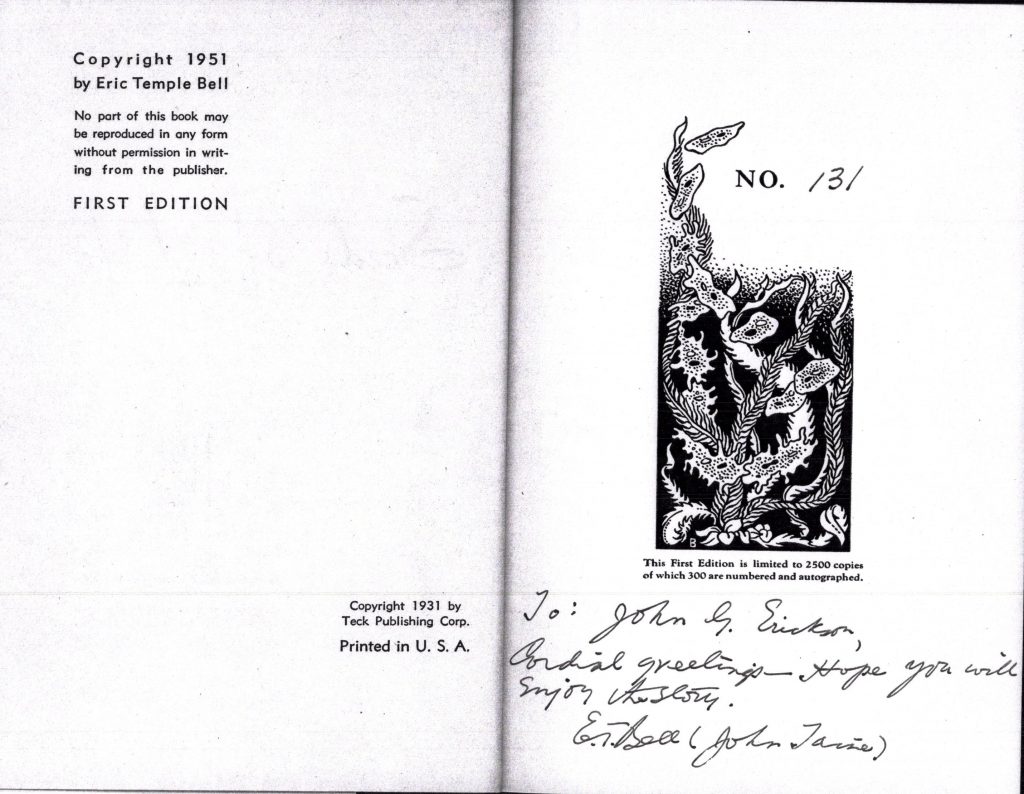 Copyright 1951
by Eric Temple Bell
No part of this book may
be reproduced in any form
without permission in writ-
ing from the publisher.
FIRST EDITION
Copyright 1931 by
Teck Publishing Corp.
Printed in U. S. A.
NO. 131
B
This First Edition is limited to 2500 copies
of which 300 are numbered and autographed.
To: John G. Erickson,
Cordial greetings— Hope you will
enjoy the story.
E.T. Bell (John Taine)